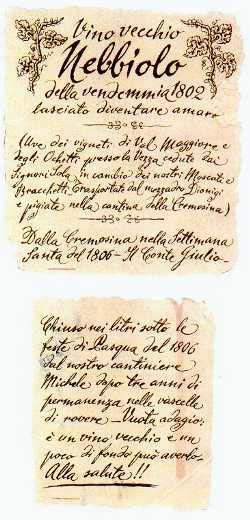 Vino vecchio
Nebbiolo
della vendemmia 1802
lasciato diventare amaro
(Uve dei vigneti di Val Maggiore e
degli Ochetti, presso la Vezza cedute dai
Signori Sola in cambio dei nostri Moscati e
Bracchetti, trasportato dal mezzadro Dionigi
e pigiate nella cantina della Cremosina)
Dalla Cremosina nella Settimana
Santa del 1806 - Il Conte Giulio -
Chiuso nei litri sotto le
feste di Pasqua del 1806
dal nostro cantiniere
Michele dopo tre anni di
permanenza nelle vascelle
di rovere - Vuota adagio:
è un vino vecchio e un
poco di fondo può averlo -
Alla salute!!